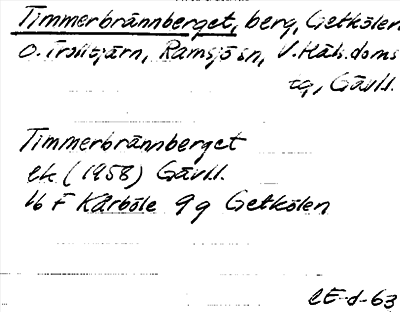 Timmerbrännberget, berg, Getkölen
O. Ramsjö sn, V. Häls. doms
Gävl.l.
Timmerbrännberget
ek (1958) Gävl.l.
16 F Kårböle 9g Getkölen
-d-63